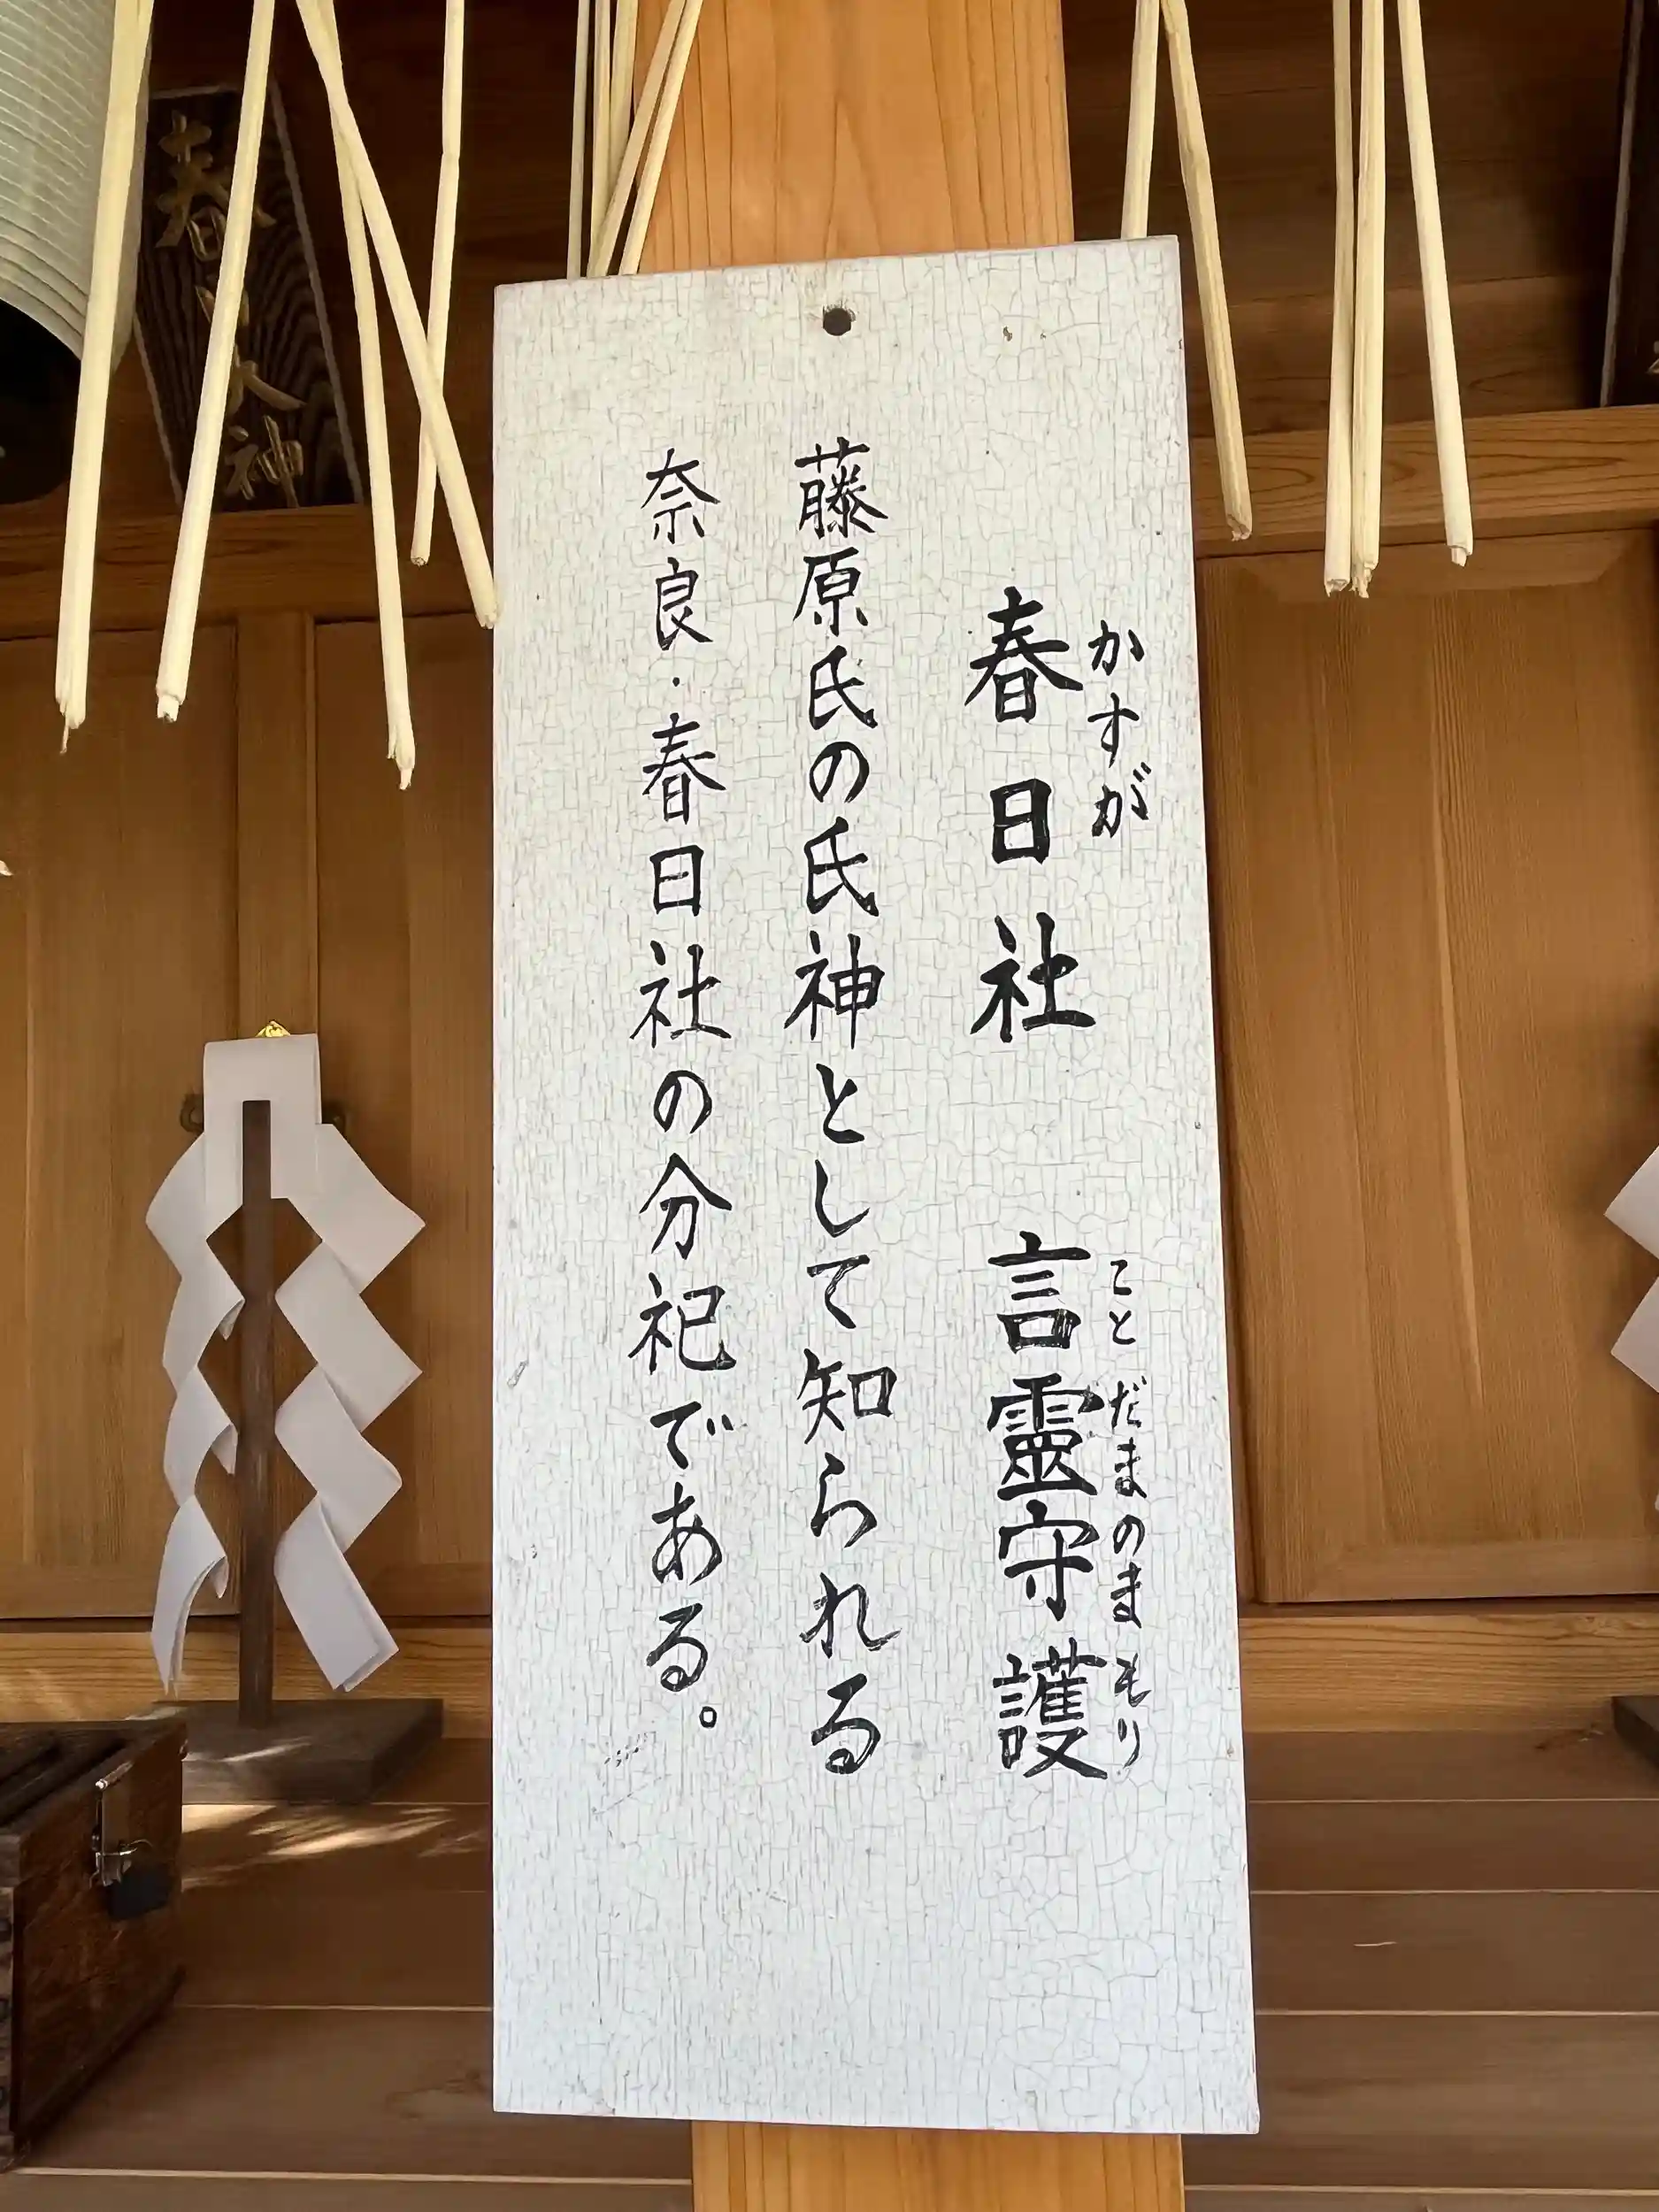 かすが
春日社
ことだまのまもり
言靈守護
藤原氏の氏神として知られる
奈良・春日社の分祀である。
春日大神